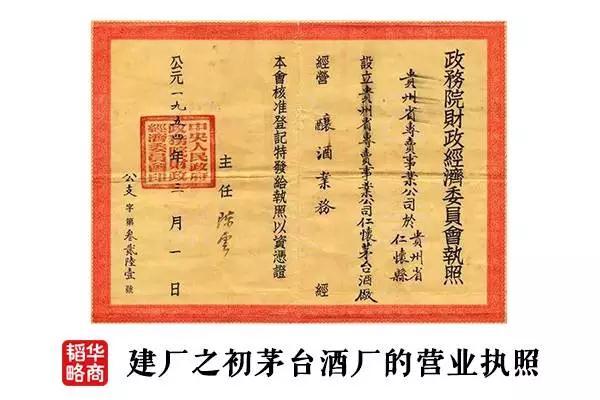 政務院財政經濟委員會執照
貴州省專賣事業公司於貴州省仁懷縣
設立貴州省專賣事業公司仁懷茅台酒廠
經營 釀酒業務 經
本會核准登記特發給執照以資憑證
主任 陳雲
中央人民政府
政務院財政
經濟委員會印
公元一九五四年三月一日
公支字第叁貳陸壹號
华商
韬略
建厂之初茅台酒厂的营业执照